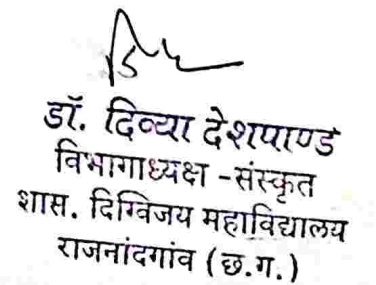 डॉ. दिव्या देशपाण्ड
विभागाध्यक्ष - संस्कृत
शास. दिग्विजय महाविद्यालय
राजनांदगांव (छ.ग.)